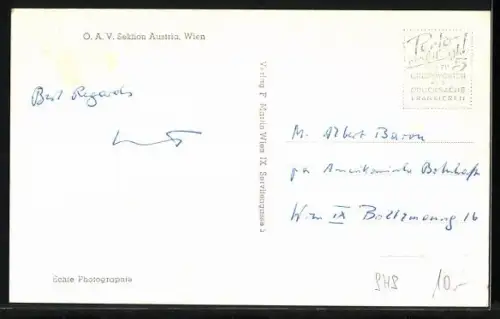 Ö. A. V. Sektion Austria, Wien
Best Regards
Echte Photographie
Verlag P. Mariis Wien IX Servitengasse 5
Porto
5
GRUSSWORTEN
ALS
DRUCKSACHE
FRANKIEREN
Mr. Albert Baron
per Amerikanische Botschaft
Wien IX Boltzmanng 16
SHS 10.-